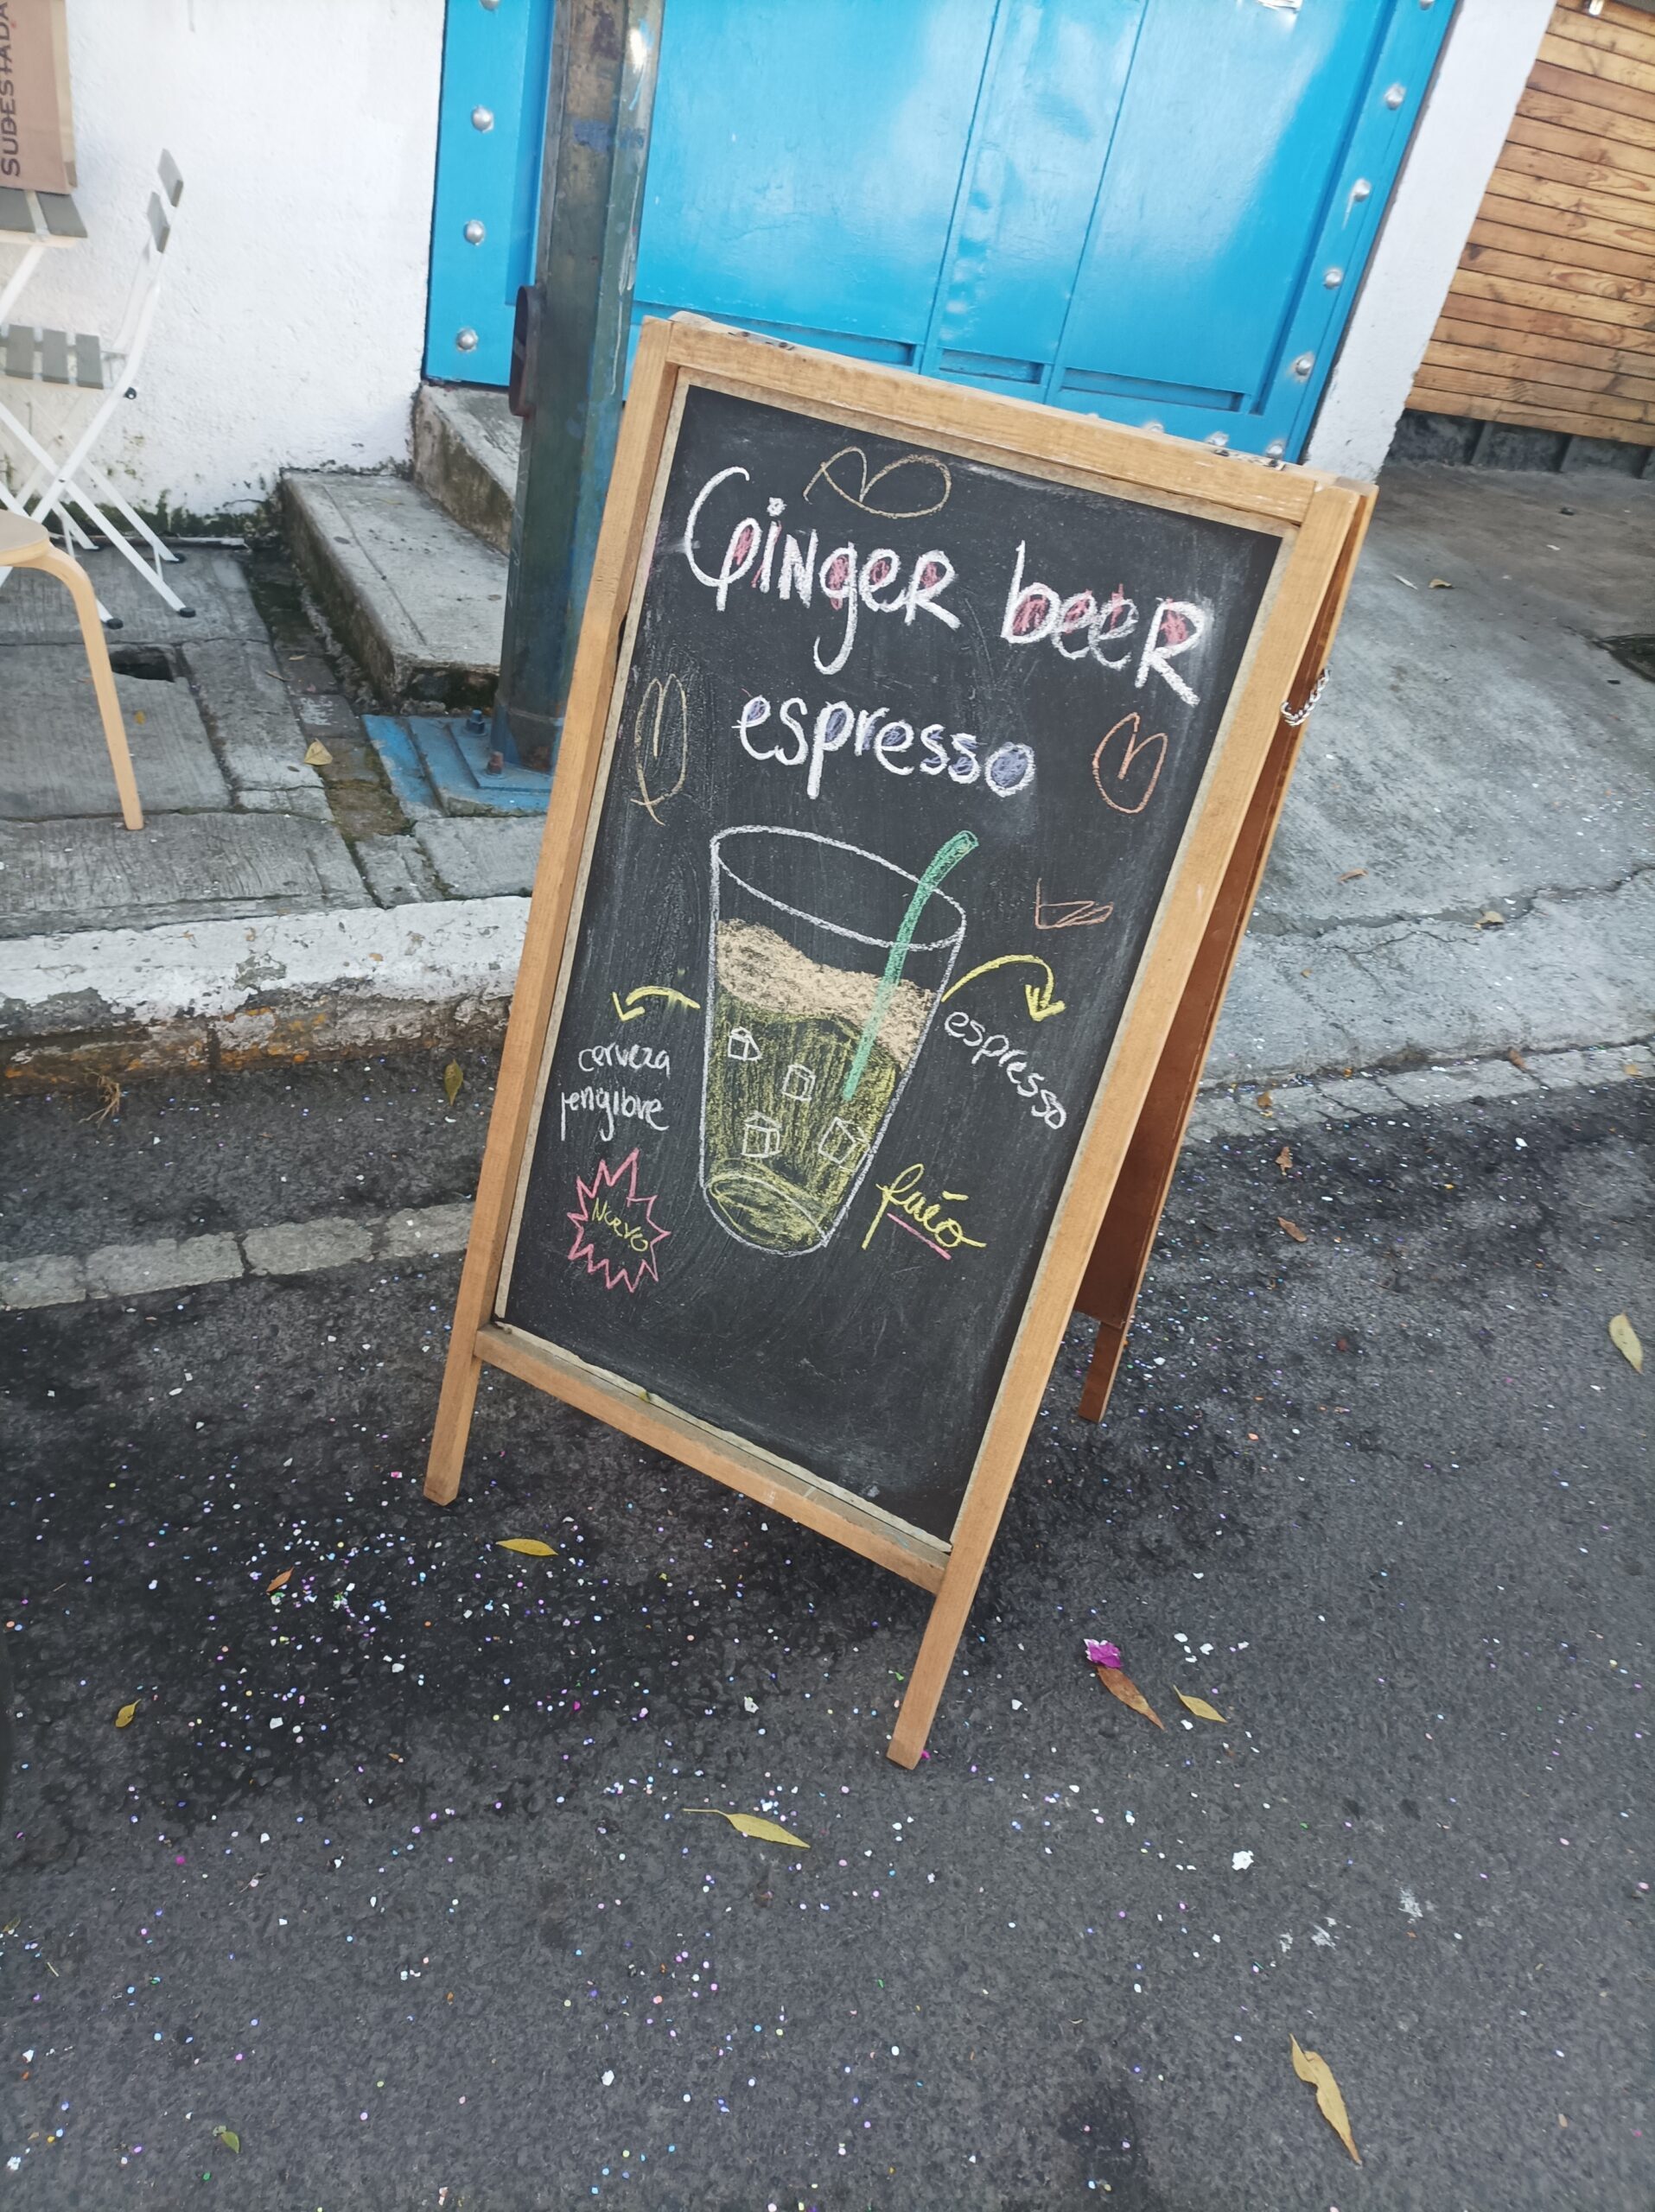 SUDESTADA
Ginger beer
espresso
espresso
cerveza
jengibre
Nuevo